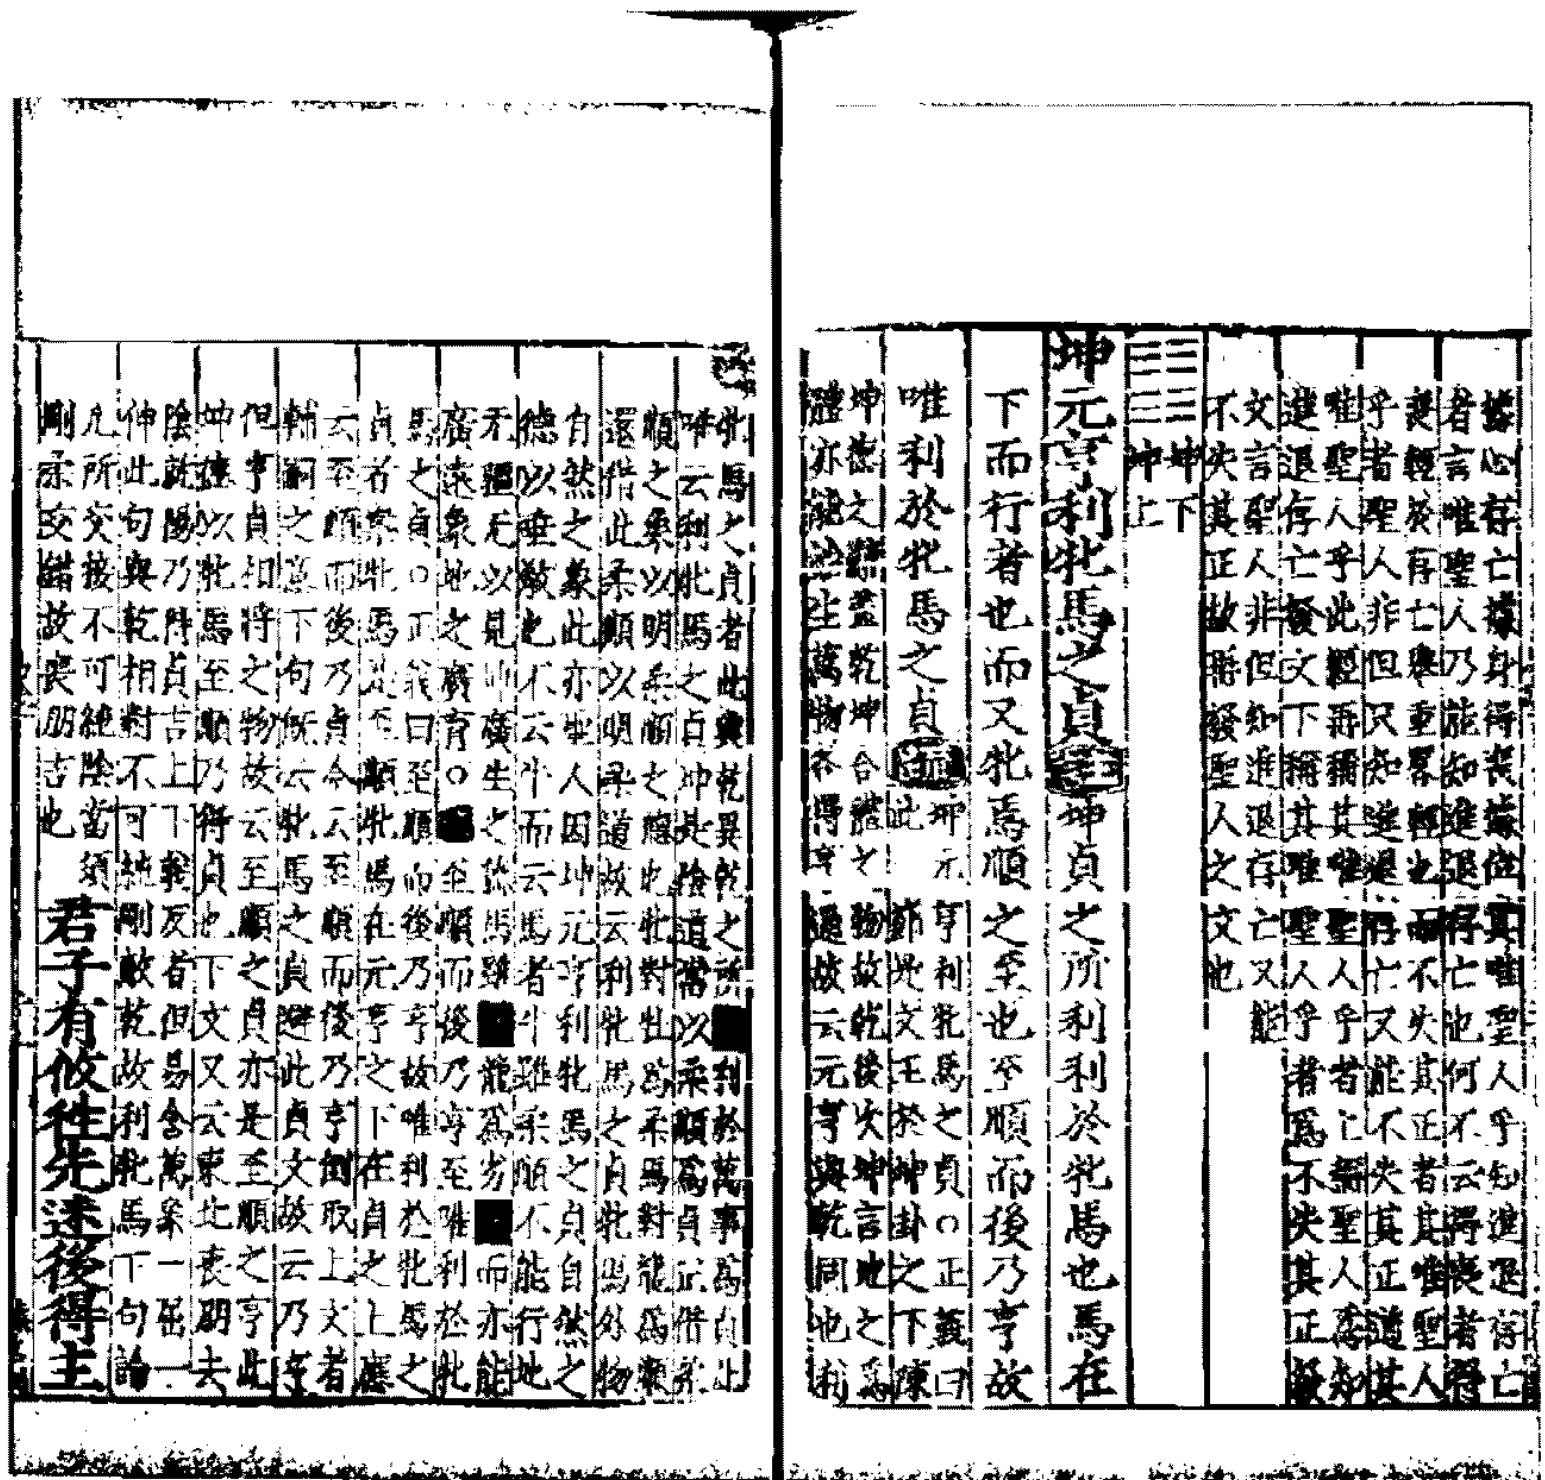 據心存亡據身得喪據位其唯聖人乎知進退存亡
者言唯聖人乃能知進退存亡也何不云得喪者得
喪輕於存亡舉重畧輕也而不失其正者其唯聖人
乎者聖人非但只知進退存亡又能不失其正道其
唯聖人乎此經再稱其唯聖人乎者上稱聖人為知
進退存亡發文下稱其唯聖人乎者為不失其正發
文言聖人非但知進退存亡又能
不失其正故再發聖人之文也
䷁ 坤下
坤上
坤元亨利牝馬之貞注坤貞之所利利於牝馬也馬在
下而行者也而又牝馬順之至也至順而後乃亨故
唯利於牝馬之貞疏坤元亨利牝馬之貞○正義曰
此一節是文王於坤卦之下陳
坤德之辭蓋乾坤合體之物故乾後次坤言地之為
體亦能始生萬物各得亨通故云元亨與乾同也利
牝馬之貞者此與乾異乾之所■利於萬事為貞此
唯云利牝馬之貞坤是陰道當以柔順為貞正借柔
順之象以明柔順之德也牝對牡為柔馬對龍為順
還借此柔順以明柔道故云利牝馬之貞牝馬外物
自然之象此亦聖人因坤元亨利牝馬之貞自然之
德以垂敎也不云牛而云馬者牛雖柔順不能行地
无疆无以見坤廣生之德馬雖■龍為劣■而亦能
廣遠象地之廣育○注至順而後乃亨至唯利於牝
馬之貞○正義曰至順而後乃亨故唯利於牝馬之
貞者案牝馬是至順牝馬在元亨之下在貞之上應
云至順而後乃貞今云至順而後乃亨倒取上文者
輔嗣之意下句既云牝馬之貞避此貞文故云乃亨
但亨貞相將之物故云至順之貞亦是至順之亨此
坤德以牝馬至順乃得貞也下文又云東北喪朋去
陰就陽乃得貞吉上下義反者但易含萬象一屈一
伸此句與乾相對不可純剛敵乾故利牝馬下句論
凡所交接不可純陰當須
剛柔交錯故喪朋吉也
君子有攸往先迷後得主